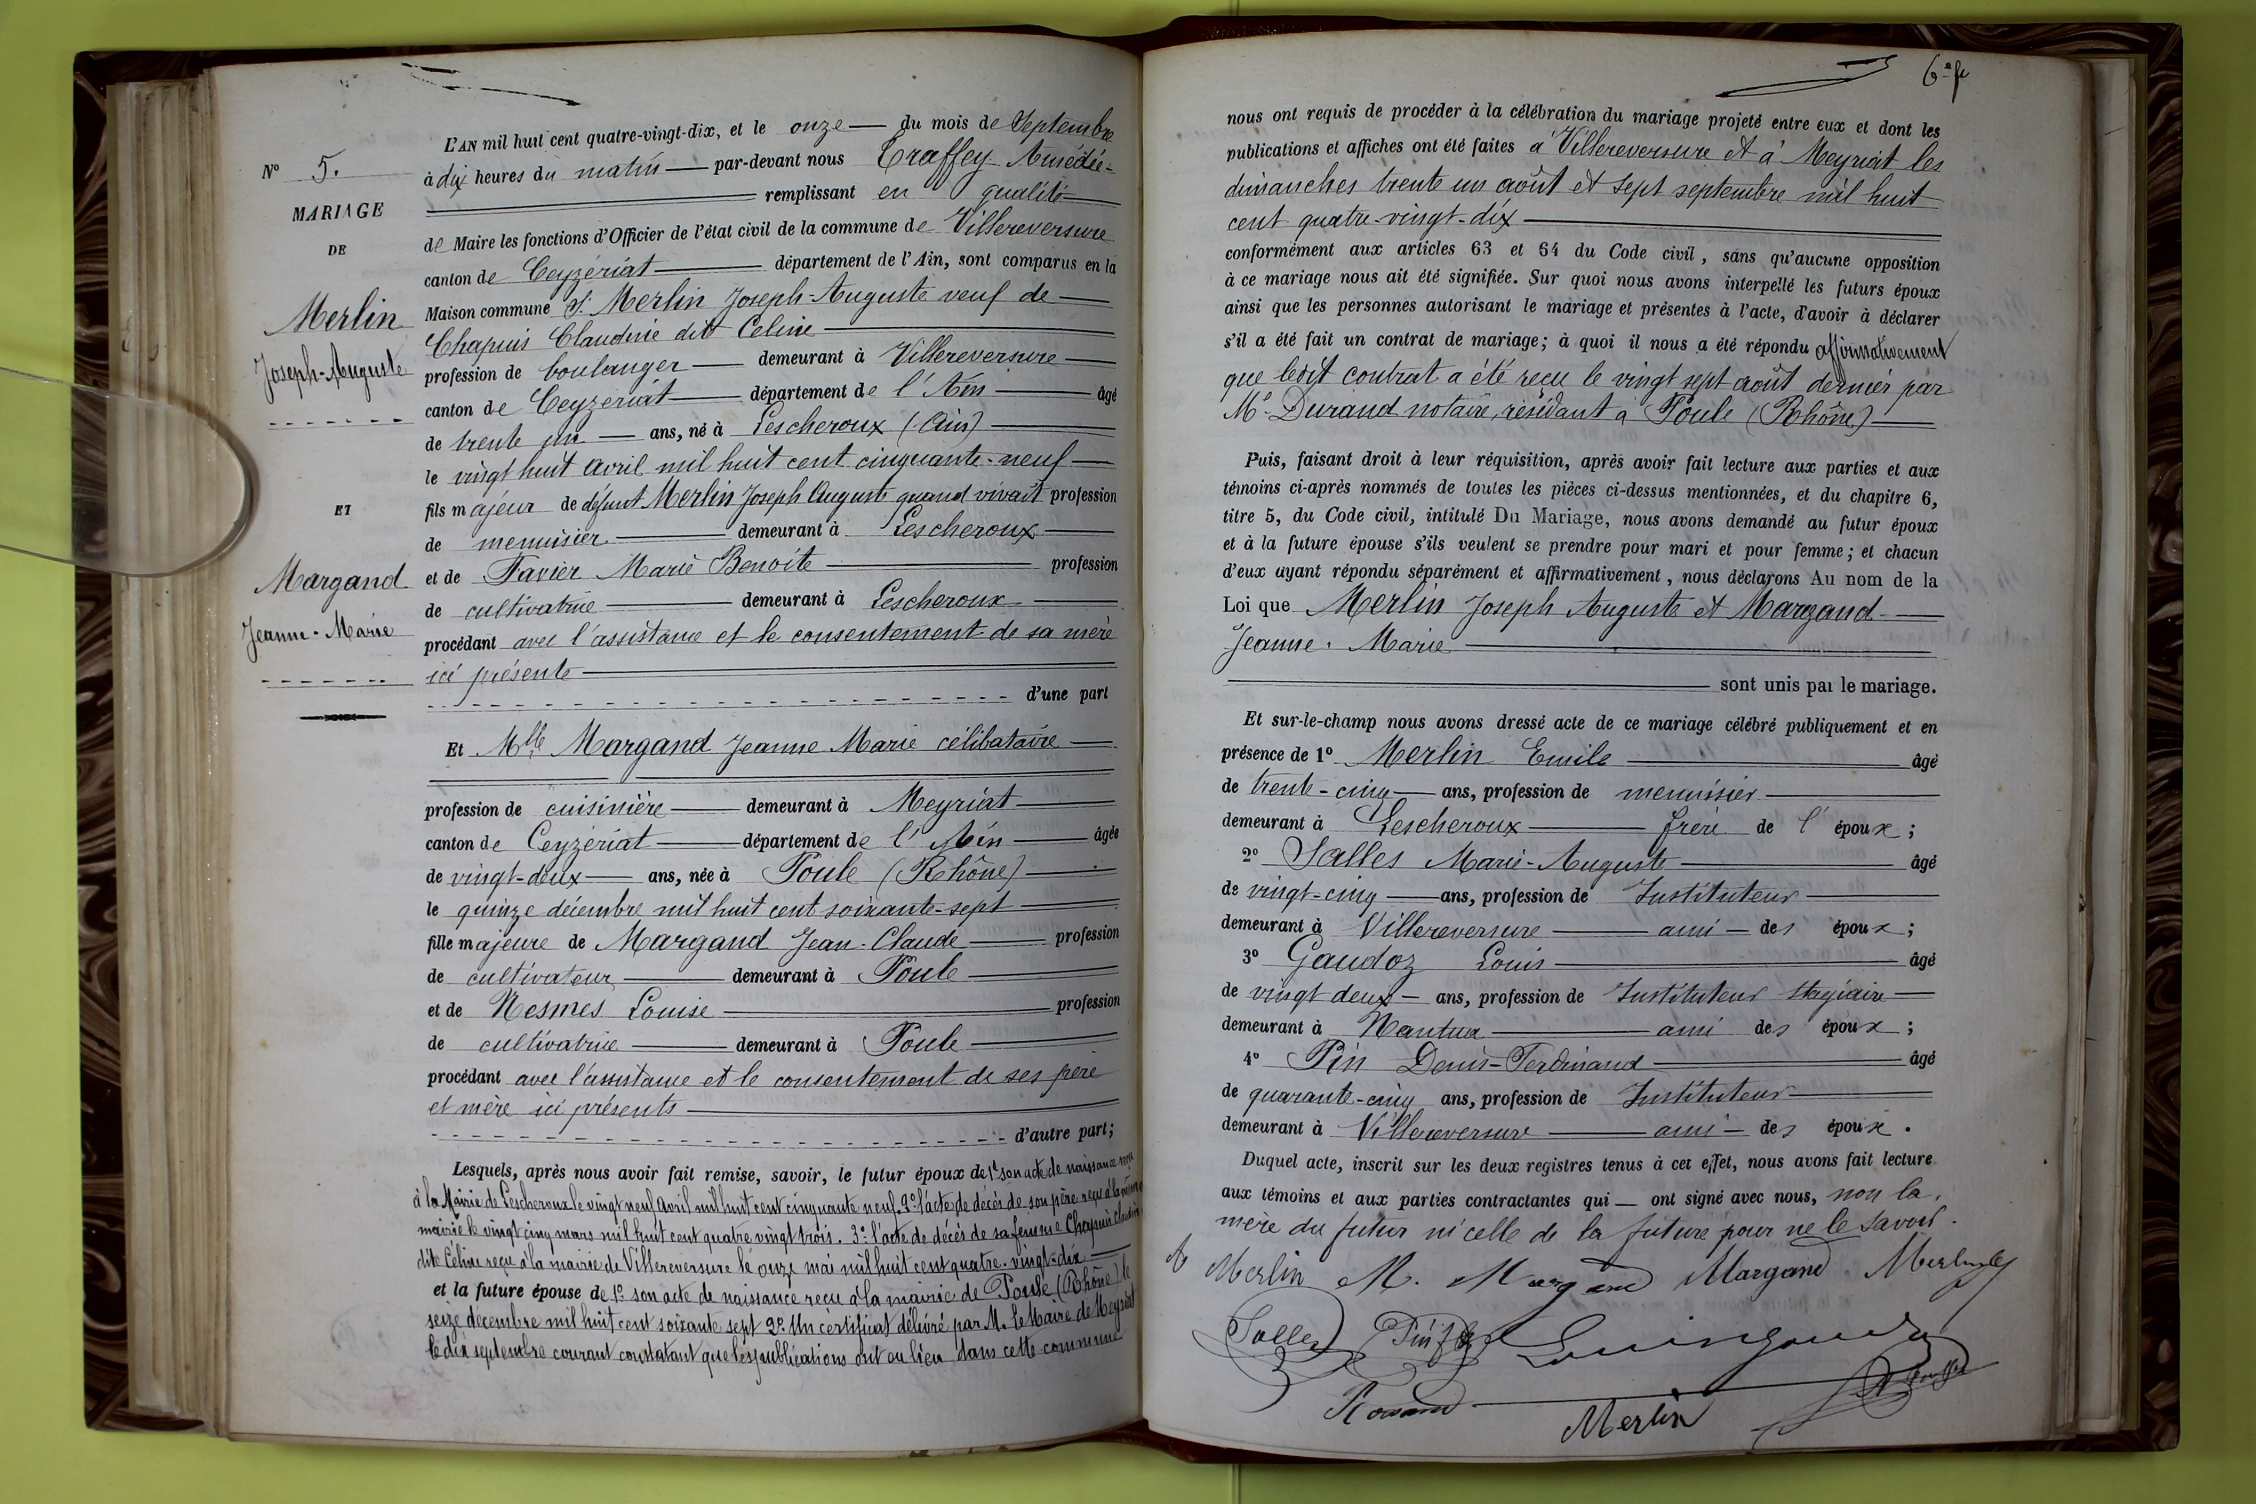 N° 5.
MARIAGE
DE
Merlin
Joseph-Auguste
ET
Margand
Jeanne-Marie
L'AN mil huit cent quatre-vingt-dix, et le onze du mois de Septembre
à dix heures du matin par-devant nous Traffey Amédée
remplissant en qualité
de Maire les fonctions d'Officier de l'état civil de la commune de Villereversure
canton de Ceyzériat département de l'Ain, sont comparus en la
Maison commune S. Merlin Joseph-Auguste veuf de
Chapuis Claudine dite Celine
profession de boulanger demeurant à Villereversure
canton de Ceyzeriat département de l'Ain âgé
de trente un ans, né à Lescheroux (Ain)
le vingt huit avril mil huit cent cinquante-neuf
fils majeur de défunt Merlin Joseph Auguste quand vivait profession
de menuisier demeurant à Lescheroux
et de Favier Marie Benoite profession
de cultivatrice demeurant à Lescheroux
procédant avec l'assistance et le consentement de sa mère
ici présente
d'une part
Et Mlle Margand Jeanne Marie célibataire
profession de cuisinière demeurant à Meyriat
canton de Ceyzériat département de l'Ain âgée
de vingt-deux ans, née à Poule (Rhône)
le quinze décembre mil huit cent soixante-sept
fille majeure de Margand Jean-Claude profession
de cultivateur demeurant à Poule
et de Nesmes Louise profession
de cultivatrice demeurant à Poule
procédant avec l'assistance et le consentement de ses père
et mère ici présents
d'autre part;
Lesquels, après nous avoir fait remise, savoir, le futur époux de 1° son acte de naissance reçu
à la Mairie de Lescheroux le vingt neuf avril mil huit cent cinquante neuf. 2° l'acte de décès de son père reçu à la même
mairie le vingt cinq mars mil huit cent quatre vingt trois. 3° l'acte de décès de sa femme Chapuis Claudine
dite Céline reçu à la mairie de Villereversure le onze mai mil huit cent quatre-vingt-dix
et la future épouse de 1° son acte de naissance reçu à la mairie de Poule (Rhône) le
seize décembre mil huit cent soixante sept 2° Un certificat délivré par M. le Maire de Meyriat
le dix septembre courant constatant que les publications ont eu lieu dans cette commune
6e f
nous ont requis de procéder à la célébration du mariage projeté entre eux et dont les
publications et affiches ont été faites à Villereversure et à Meyriat les
dimanches trente un août et sept septembre mil huit
cent quatre-vingt-dix
conformément aux articles 63 et 64 du Code civil, sans qu'aucune opposition
à ce mariage nous ait été signifiée. Sur quoi nous avons interpellé les futurs époux
ainsi que les personnes autorisant le mariage et présentes à l'acte, d'avoir à déclarer
s'il a été fait un contrat de mariage; à quoi il nous a été répondu affirmativement
que ledit contrat a été reçu le vingt sept août dernier par
Me Durand notaire, résidant à Poule (Rhône)
Puis, faisant droit à leur réquisition, après avoir fait lecture aux parties et aux
témoins ci-après nommés de toutes les pièces ci-dessus mentionnées, et du chapitre 6,
titre 5, du Code civil, intitulé Du Mariage, nous avons demandé au futur époux
et à la future épouse s'ils veulent se prendre pour mari et pour femme; et chacun
d'eux ayant répondu séparément et affirmativement, nous déclarons Au nom de la
Loi que Merlin Joseph Auguste et Margand
Jeanne-Marie
sont unis par le mariage.
Et sur-le-champ nous avons dressé acte de ce mariage célébré publiquement et en
présence de 1° Merlin Emile âgé
de trente-cinq ans, profession de menuisier
demeurant à Lescheroux frère de l'époux;
2° Salles Marie-Auguste âgé
de vingt-cinq ans, profession de Instituteur
demeurant à Villereversure ami des époux;
3° Gaudoz Louis âgé
de vingt deux ans, profession de Instituteur stagiaire
demeurant à Nantua ami des époux;
4° Pin Denis-Ferdinand âgé
de quarante-cinq ans, profession de Instituteur
demeurant à Villereversure ami des époux.
Duquel acte, inscrit sur les deux registres tenus à cet effet, nous avons fait lecture
aux témoins et aux parties contractantes qui ont signé avec nous, non la
mère du futur ni celle de la future pour ne le savoir.
A Merlin M. Margand Margand Merlin
Salles Pin
Merlin